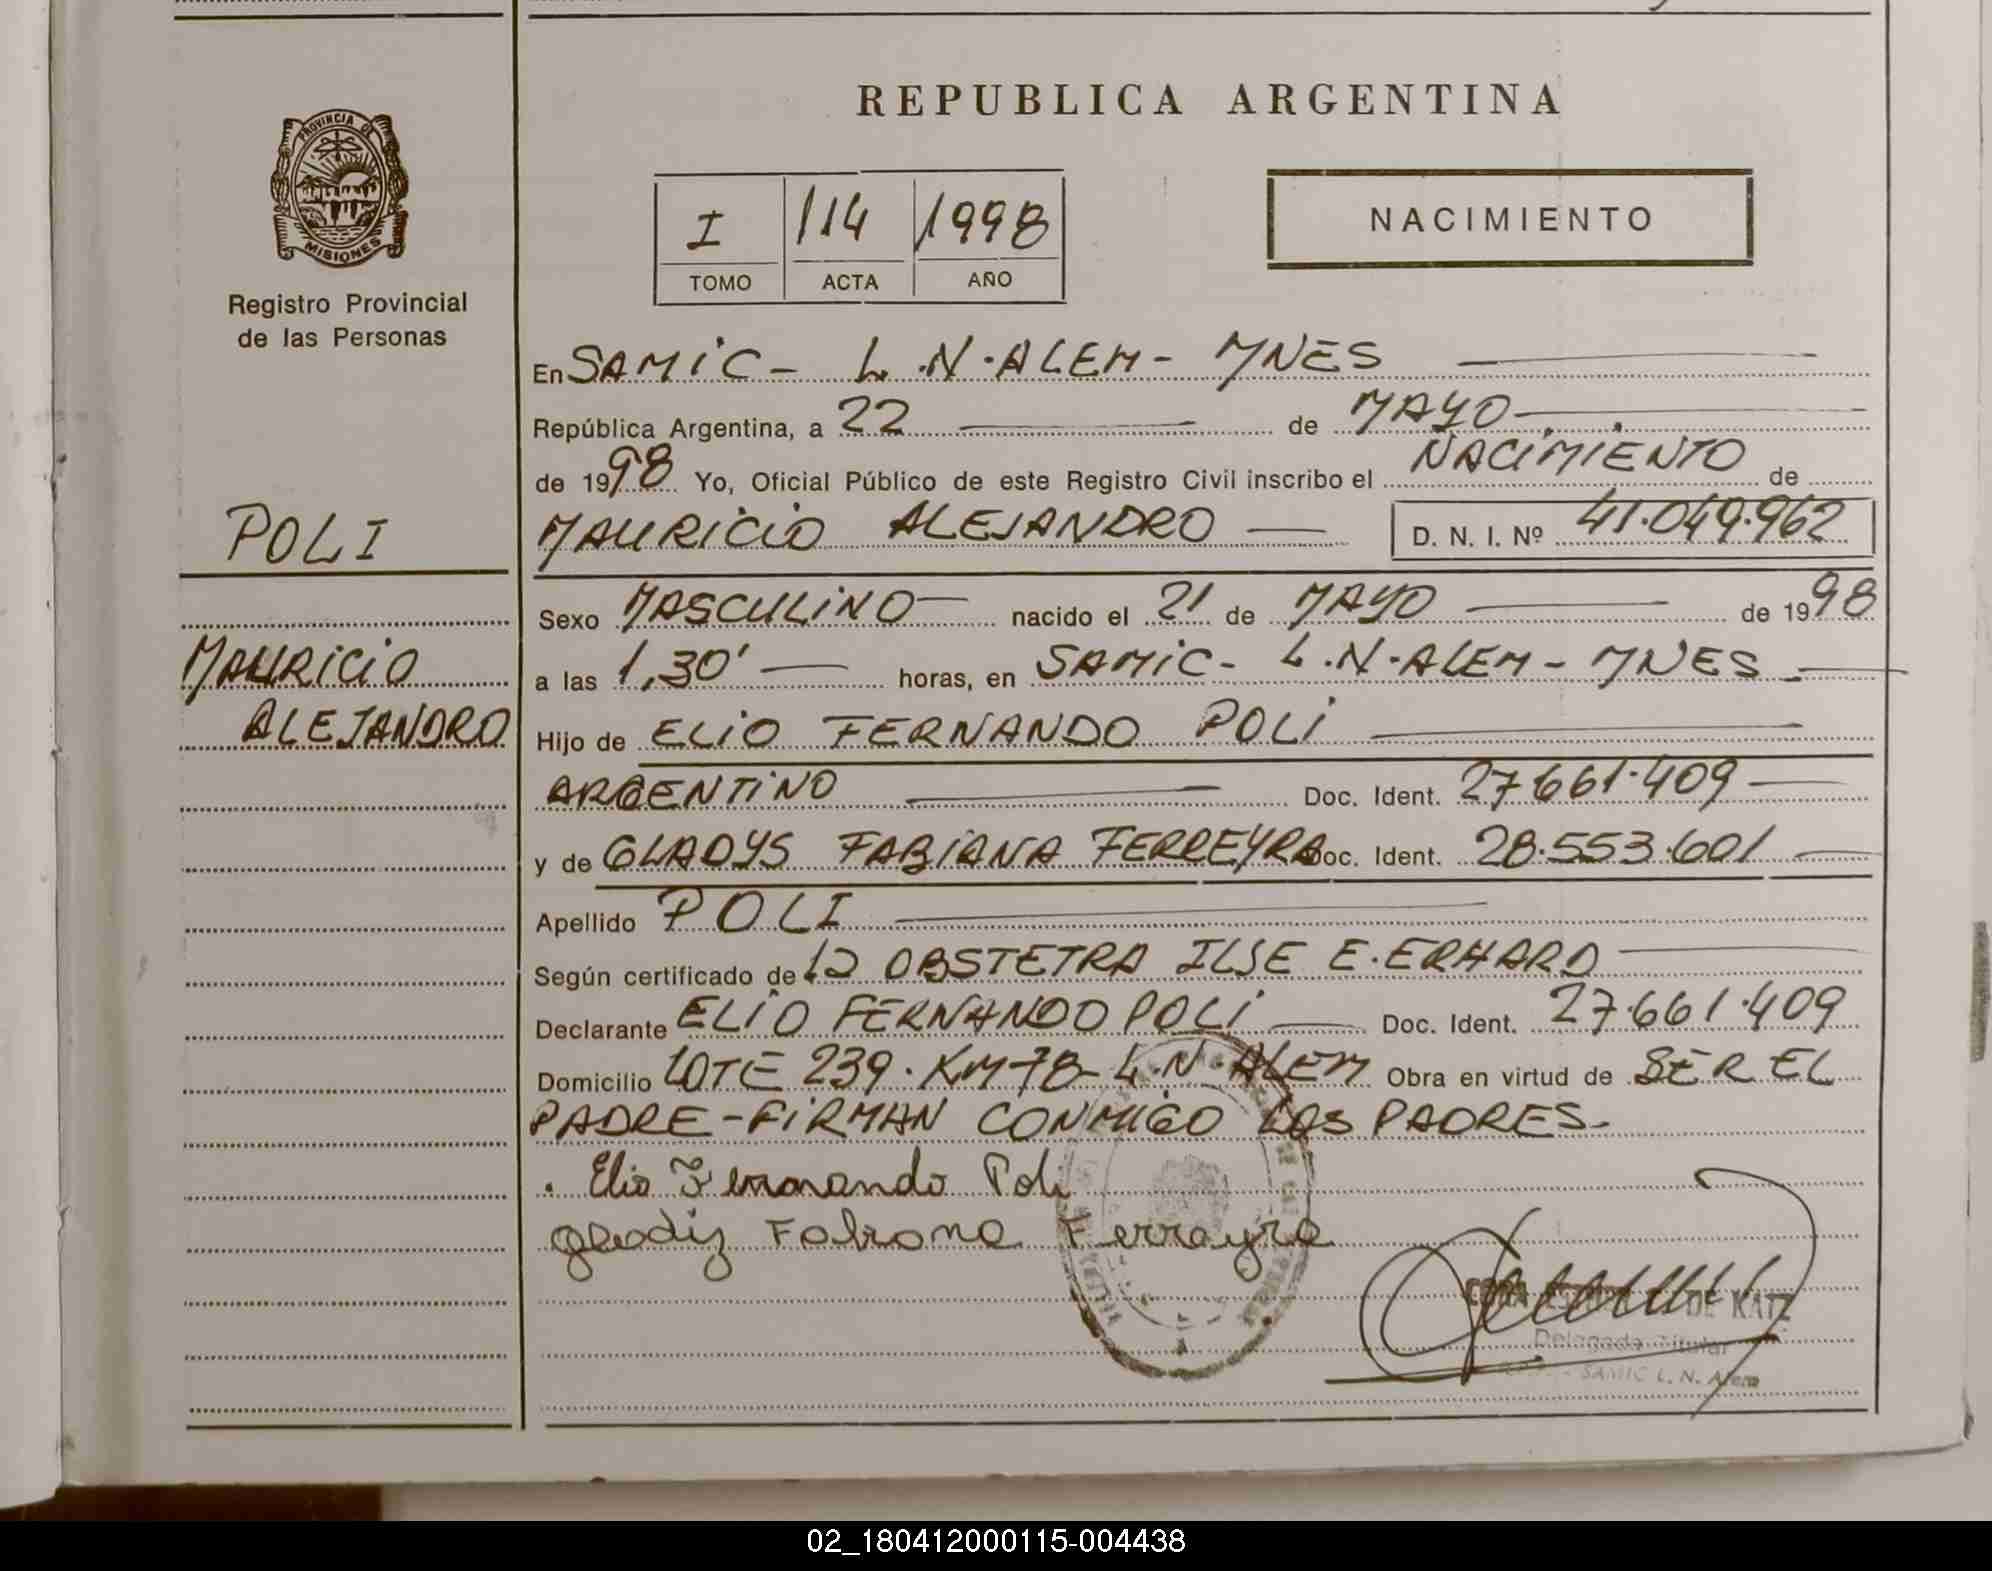 REPUBLICA ARGENTINA
PROVINCIA DE
MISIONES
Registro Provincial
de las Personas
I 114 1998
TOMO ACTA AÑO
NACIMIENTO
En SAMIC - L.N.ALEM - MNES
República Argentina, a 22 de MAYO
de 1998 Yo, Oficial Público de este Registro Civil inscribo el NACIMIENTO de
POLI
MAURICIO ALEJANDRO D. N. I. Nº 41.049.962
Sexo MASCULINO nacido el 21 de MAYO de 1998
MAURICIO
a las 1,30' horas, en SAMIC - L.N.ALEM - MNES
ALEJANDRO
Hijo de ELIO FERNANDO POLI
ARGENTINO Doc. Ident. 27.661.409
y de GLADYS FABIANA FERREYRA Doc. Ident. 28.553.601
Apellido POLI
Según certificado de OBSTETRA ILSE E. ERHARD
Declarante ELIO FERNANDO POLI Doc. Ident. 27.661.409
Domicilio LOTE 239. KM 78 - L.N. ALEM Obra en virtud de SER EL
PADRE - FIRMAN CONMIGO LOS PADRES.
Elio Fernando Poli
Gladiz Fabiana Ferreyra
DE KATZ
Delegada Titular
SAMIC L. N. Alem
02_180412000115-004438